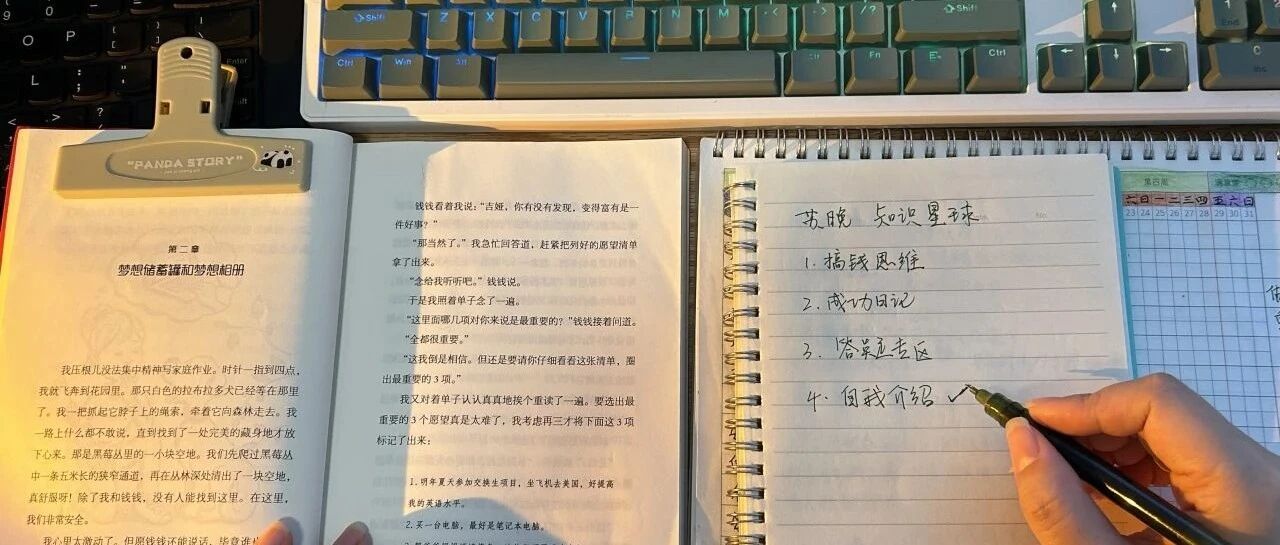 Shift
Z X C V B N M < > /? Shift
Ctrl Win Alt Alt Fn E Ctrl
1 End
O P
L Enter
"PANDA STORY"
第二章
梦想储蓄罐和梦想相册
我压根儿没法集中精神写家庭作业。时针一指到四点，
我就飞奔到花园里。那只白色的拉布拉多犬已经等在那里
了。我一把抓起它脖子上的绳索，牵着它向森林走去。我
一路上什么都不敢说，直到找到了一处完美的藏身地才放
下心来。那是黑莓丛里的一小块空地。我们先爬过黑莓丛
中一条五米长的狭窄通道，再在丛林深处清出了一块空地，
真舒服呀！除了我和钱钱，没有人能找到这里。在这里，
我们非常安全。
我心里太激动了。但愿钱钱还能说话，毕竟谁也
钱钱看着我说：“吉娅，你有没有发现，变得富有是一
件好事？”
“那当然了。”我急忙回答道，赶紧把列好的愿望清单
拿了出来。
“念给我听听吧。”钱钱说。
于是我照着单子念了一遍。
“这里面哪几项对你来说是最重要的？”钱钱接着问道。
“全都很重要。”
“这我倒是相信。但还是要请你仔细看看这张清单，圈
出最重要的 3 项。”
我又对着单子认认真真地挨个重读了一遍。要选出最
重要的 3 个愿望真是太难了，我考虑再三才将下面这 3 项
标记了出来：
1. 明年夏天参加交换生项目，坐飞机去美国，好提高
我的英语水平。
2. 买一台电脑，最好是笔记本电脑。
苏晚 知识星球
1. 搞钱思维
2. 成功日记
3. 答疑专区
4. 自我介绍 ✓
第四周
六 日 一 二 三 四 五 六 日
23 24 25 26 27 28 29 30 31